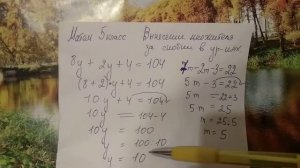 Матем 5 класс Вынесение множителя
за скобки в ур-иях
8y + 2y + 4 = 104
(8 + 2)y + 4 = 104
10y + 4 = 104
10y = 104-4
10y = 100
y = 100:10
y = 10
7m-2m-3=22
5m - 3 = 22
5m = 22+3
5m = 25
m = 25:5
m = 5